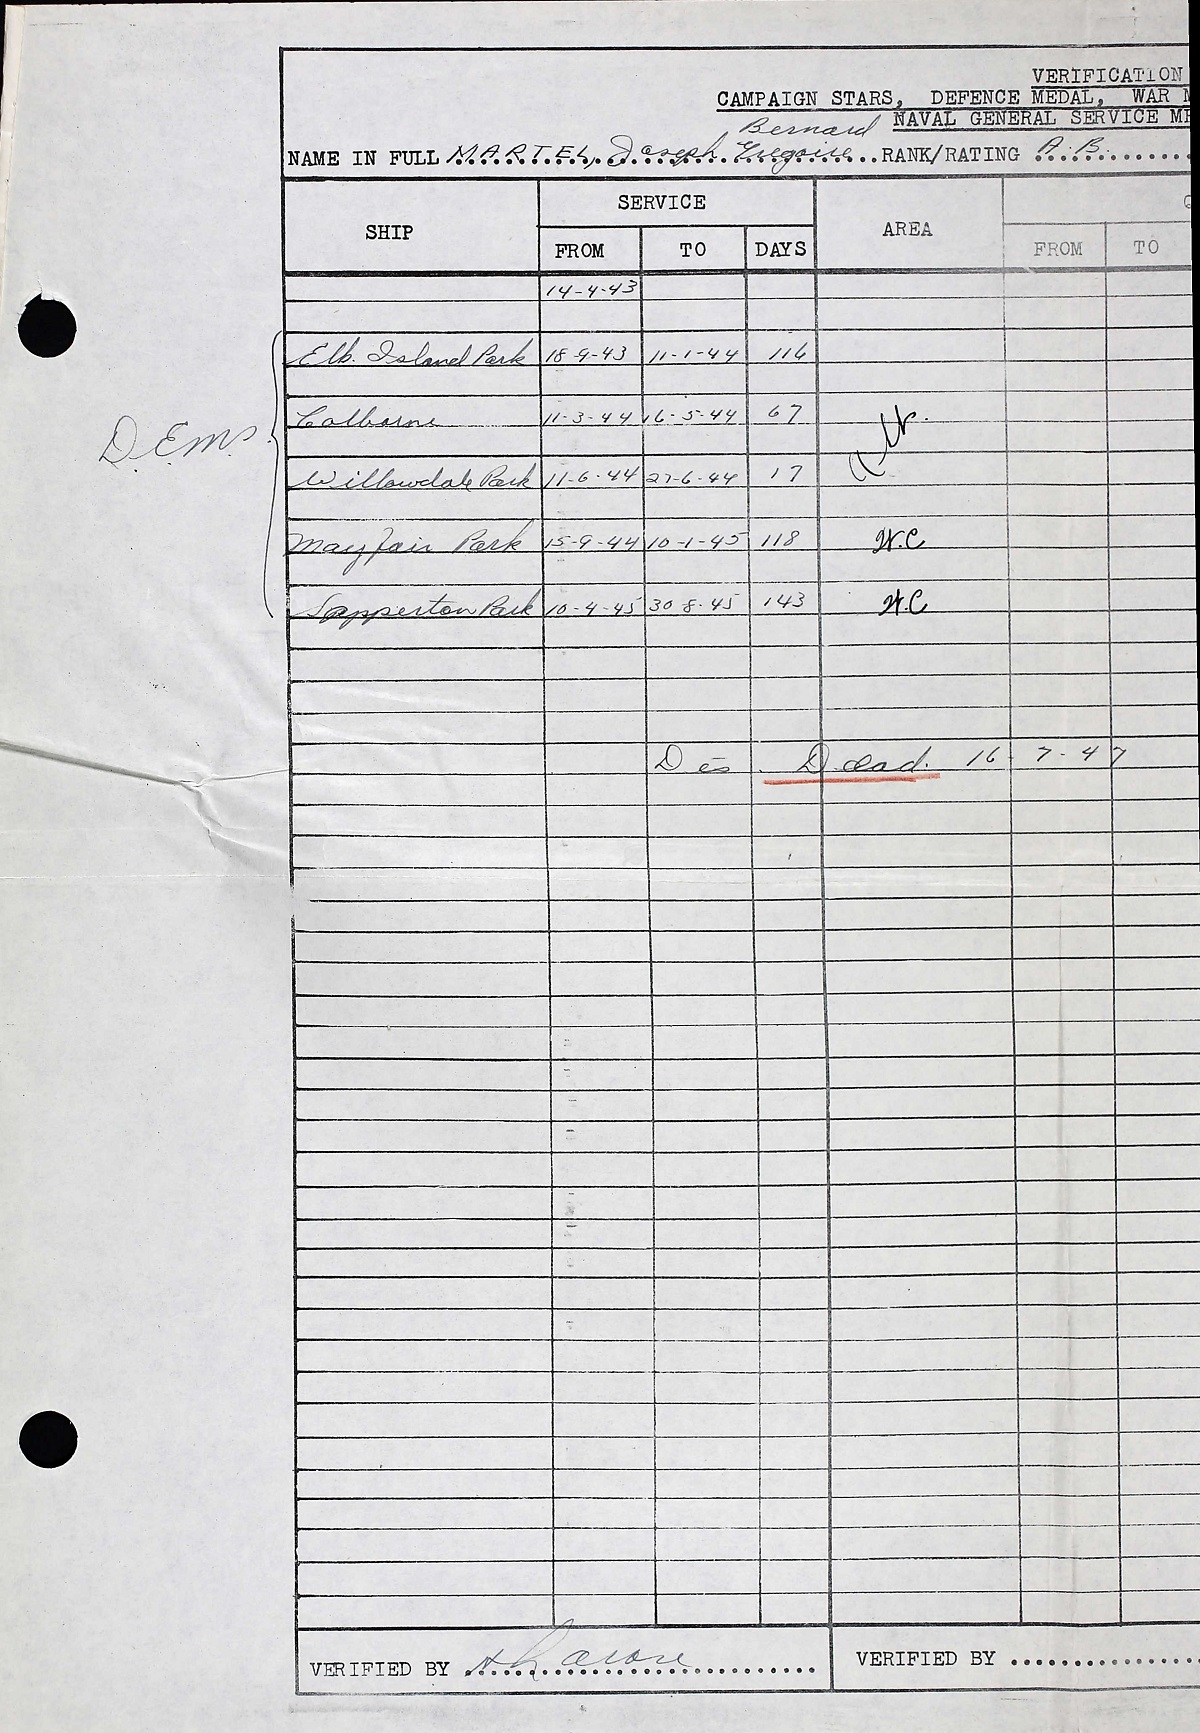 VERIFICATION
CAMPAIGN STARS, DEFENCE MEDAL, WAR M
NAVAL GENERAL SERVICE ME
Bernard
NAME IN FULL MARTEL, Joseph Gregoire RANK/RATING A.B.
SHIP SERVICE AREA Q
FROM TO DAYS FROM TO
14-4-43
Elk Island Park 18-9-43 11-1-44 116
Colborne 11-3-44 16-5-44 67 Atl.
D.E.M.S.
Willowdale Park 11-6-44 27-6-44 17
Mayfair Park 15-9-44 10-1-45 118 W.C
Sapperton Park 10-4-45 30-8-45 143 W.C
Dis Dead. 16-7-47
VERIFIED BY VERIFIED BY